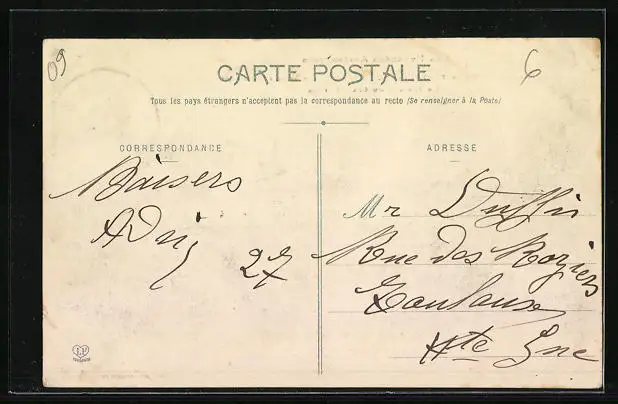 09
6
CARTE POSTALE
Tous les pays étrangers n'acceptent pas la correspondance au recto (Se renseigner à la Poste)
CORRESPONDANCE
ADRESSE
Baisers
27
Mr Duffis
Rue des Roziers
Toulouse
Hte Gne